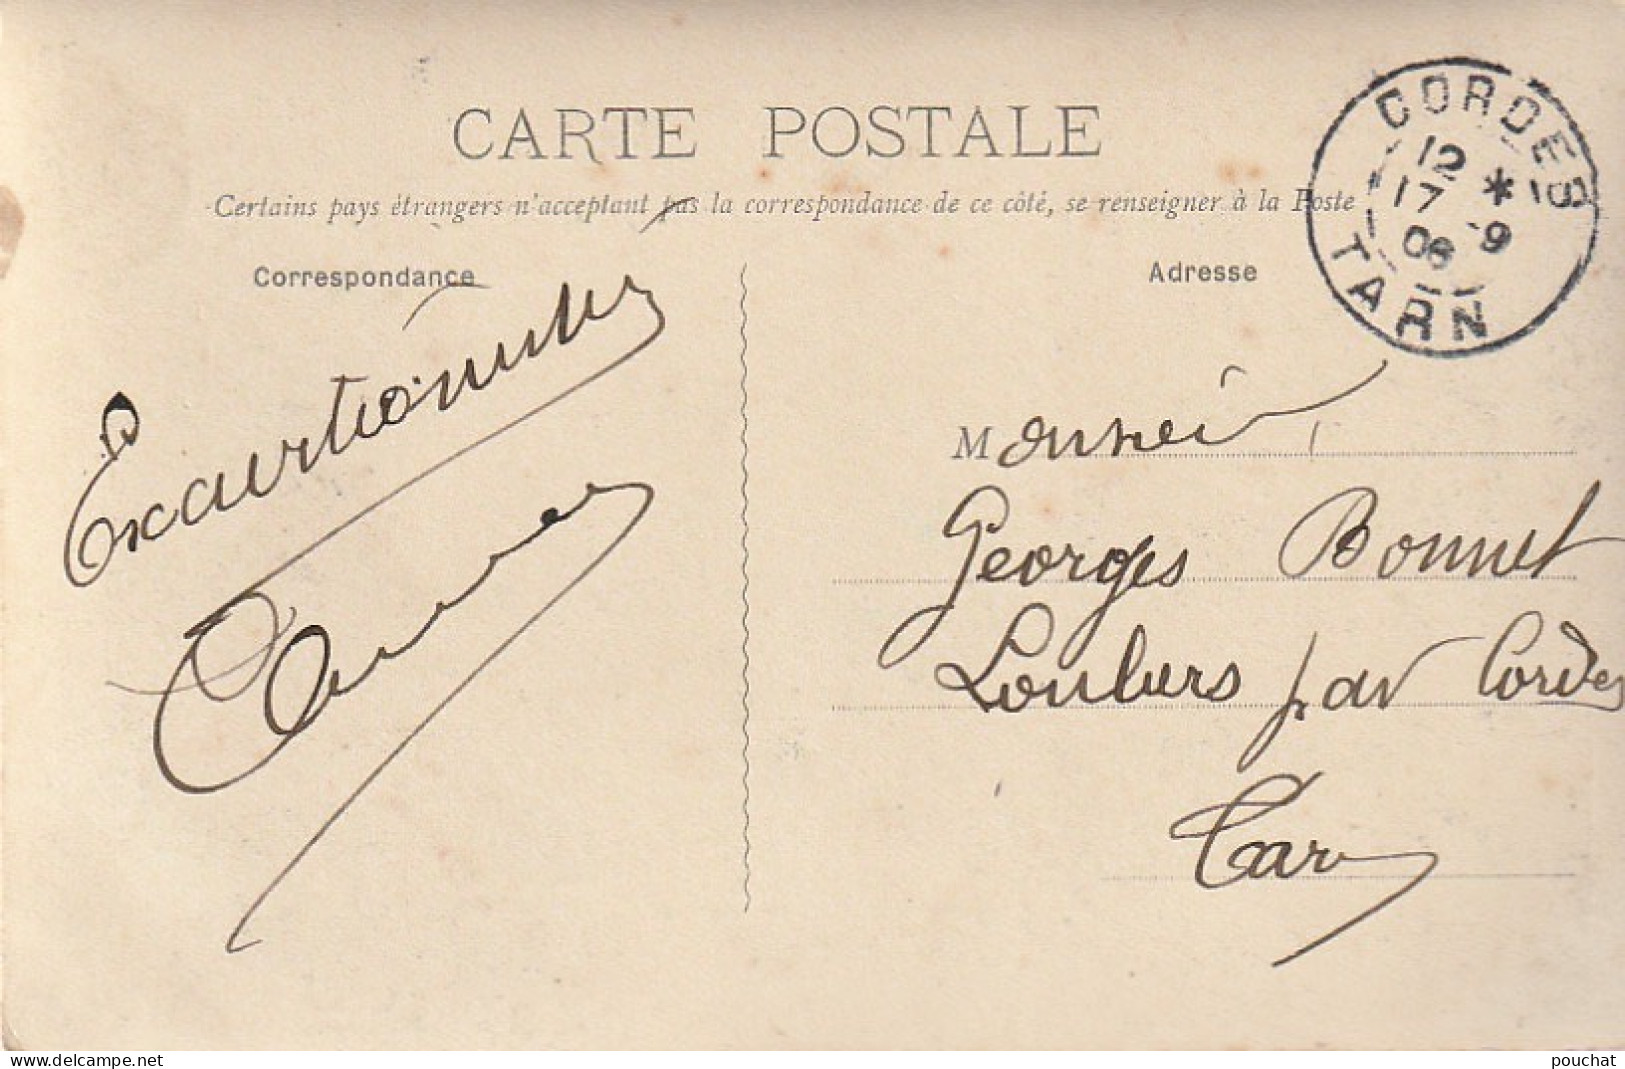 CARTE POSTALE
Certains pays étrangers n'acceptant pas la correspondance de ce côté, se renseigner à la Poste
Correspondance
Adresse
CORDES
12
17 * -9
06
TARN
Excurtionniste
Monsieur
Georges Bonnet
Loubers par Cordes
Tarn
www.delcampe.net
pouchat